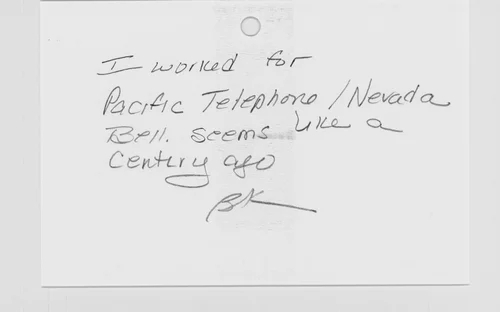 I worked for
Pacific Telephone / Nevada
Bell. Seems like a
Century ago
BK